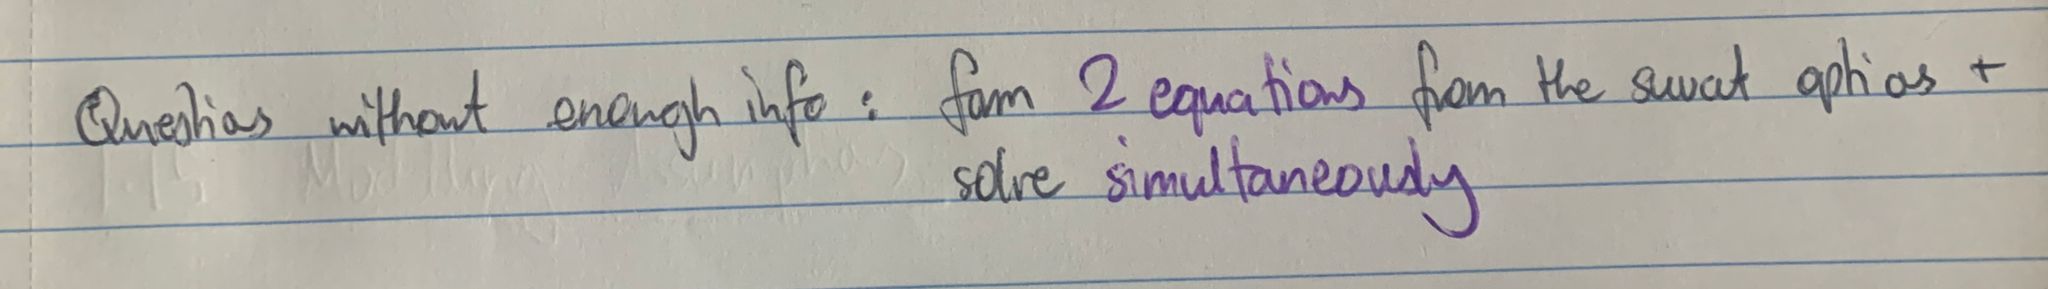 Questions without enough info: form 2 equations from the suvat options +
solve simultaneously